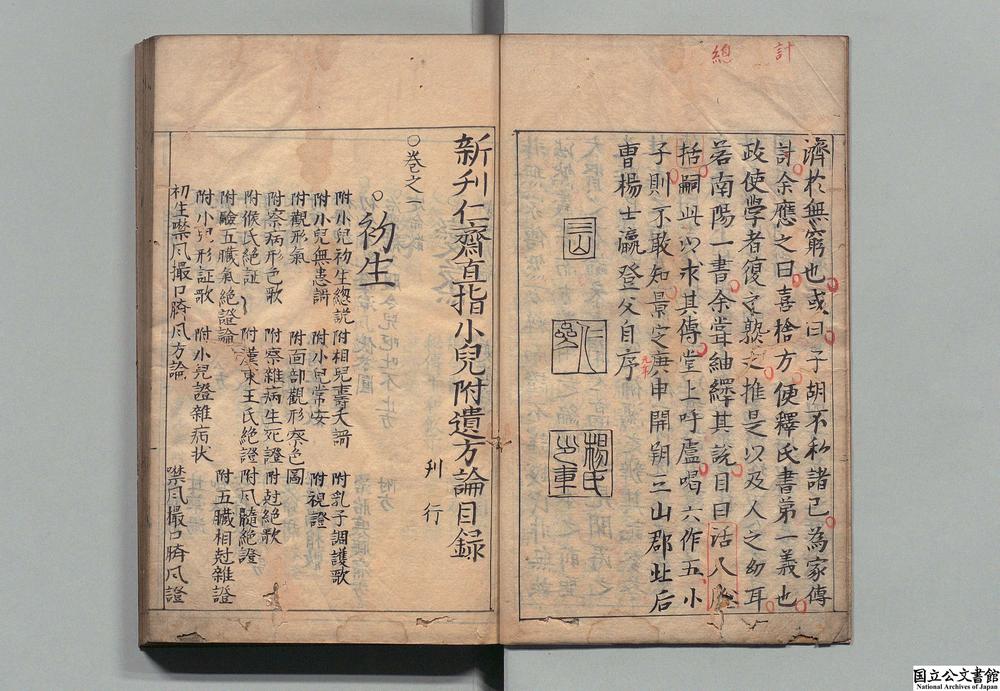 總計
濟於無窮也或曰子胡不私諸已為家傳
計余應之曰喜捨方便釋氏書第一義也
政使學者復定熟之推是以及人之幼耳
若南陽一書余嘗紬繹其說目曰活人
括嗣此以求其傳堂上呼盧喝六作五小
子則不敢知景定庚申開朔三山郡北后
曹楊士瀛登父自序
三山
楊氏
新刋仁齋直指小兒附遺方論目録
刋行
○卷之一
○初生
附小兒初生總説 附相兒壽夭謌 附乳子調護歌
附小兒無患謌 附小兒常安 附視證
附觀形氣 附面部觀形察色圖
附察病形色歌 附察雜病生死證 附尅絶歌
附候氏絶証 附漢東王氏絶證 附風髓絶證
附驗五臟氣絶證論 附五臟相尅雜證
附小兒形証歌 附小兒證雜病状
初生噤風撮口臍風方論 噤風撮口臍風證
国立公文書館
National Archives of Japan